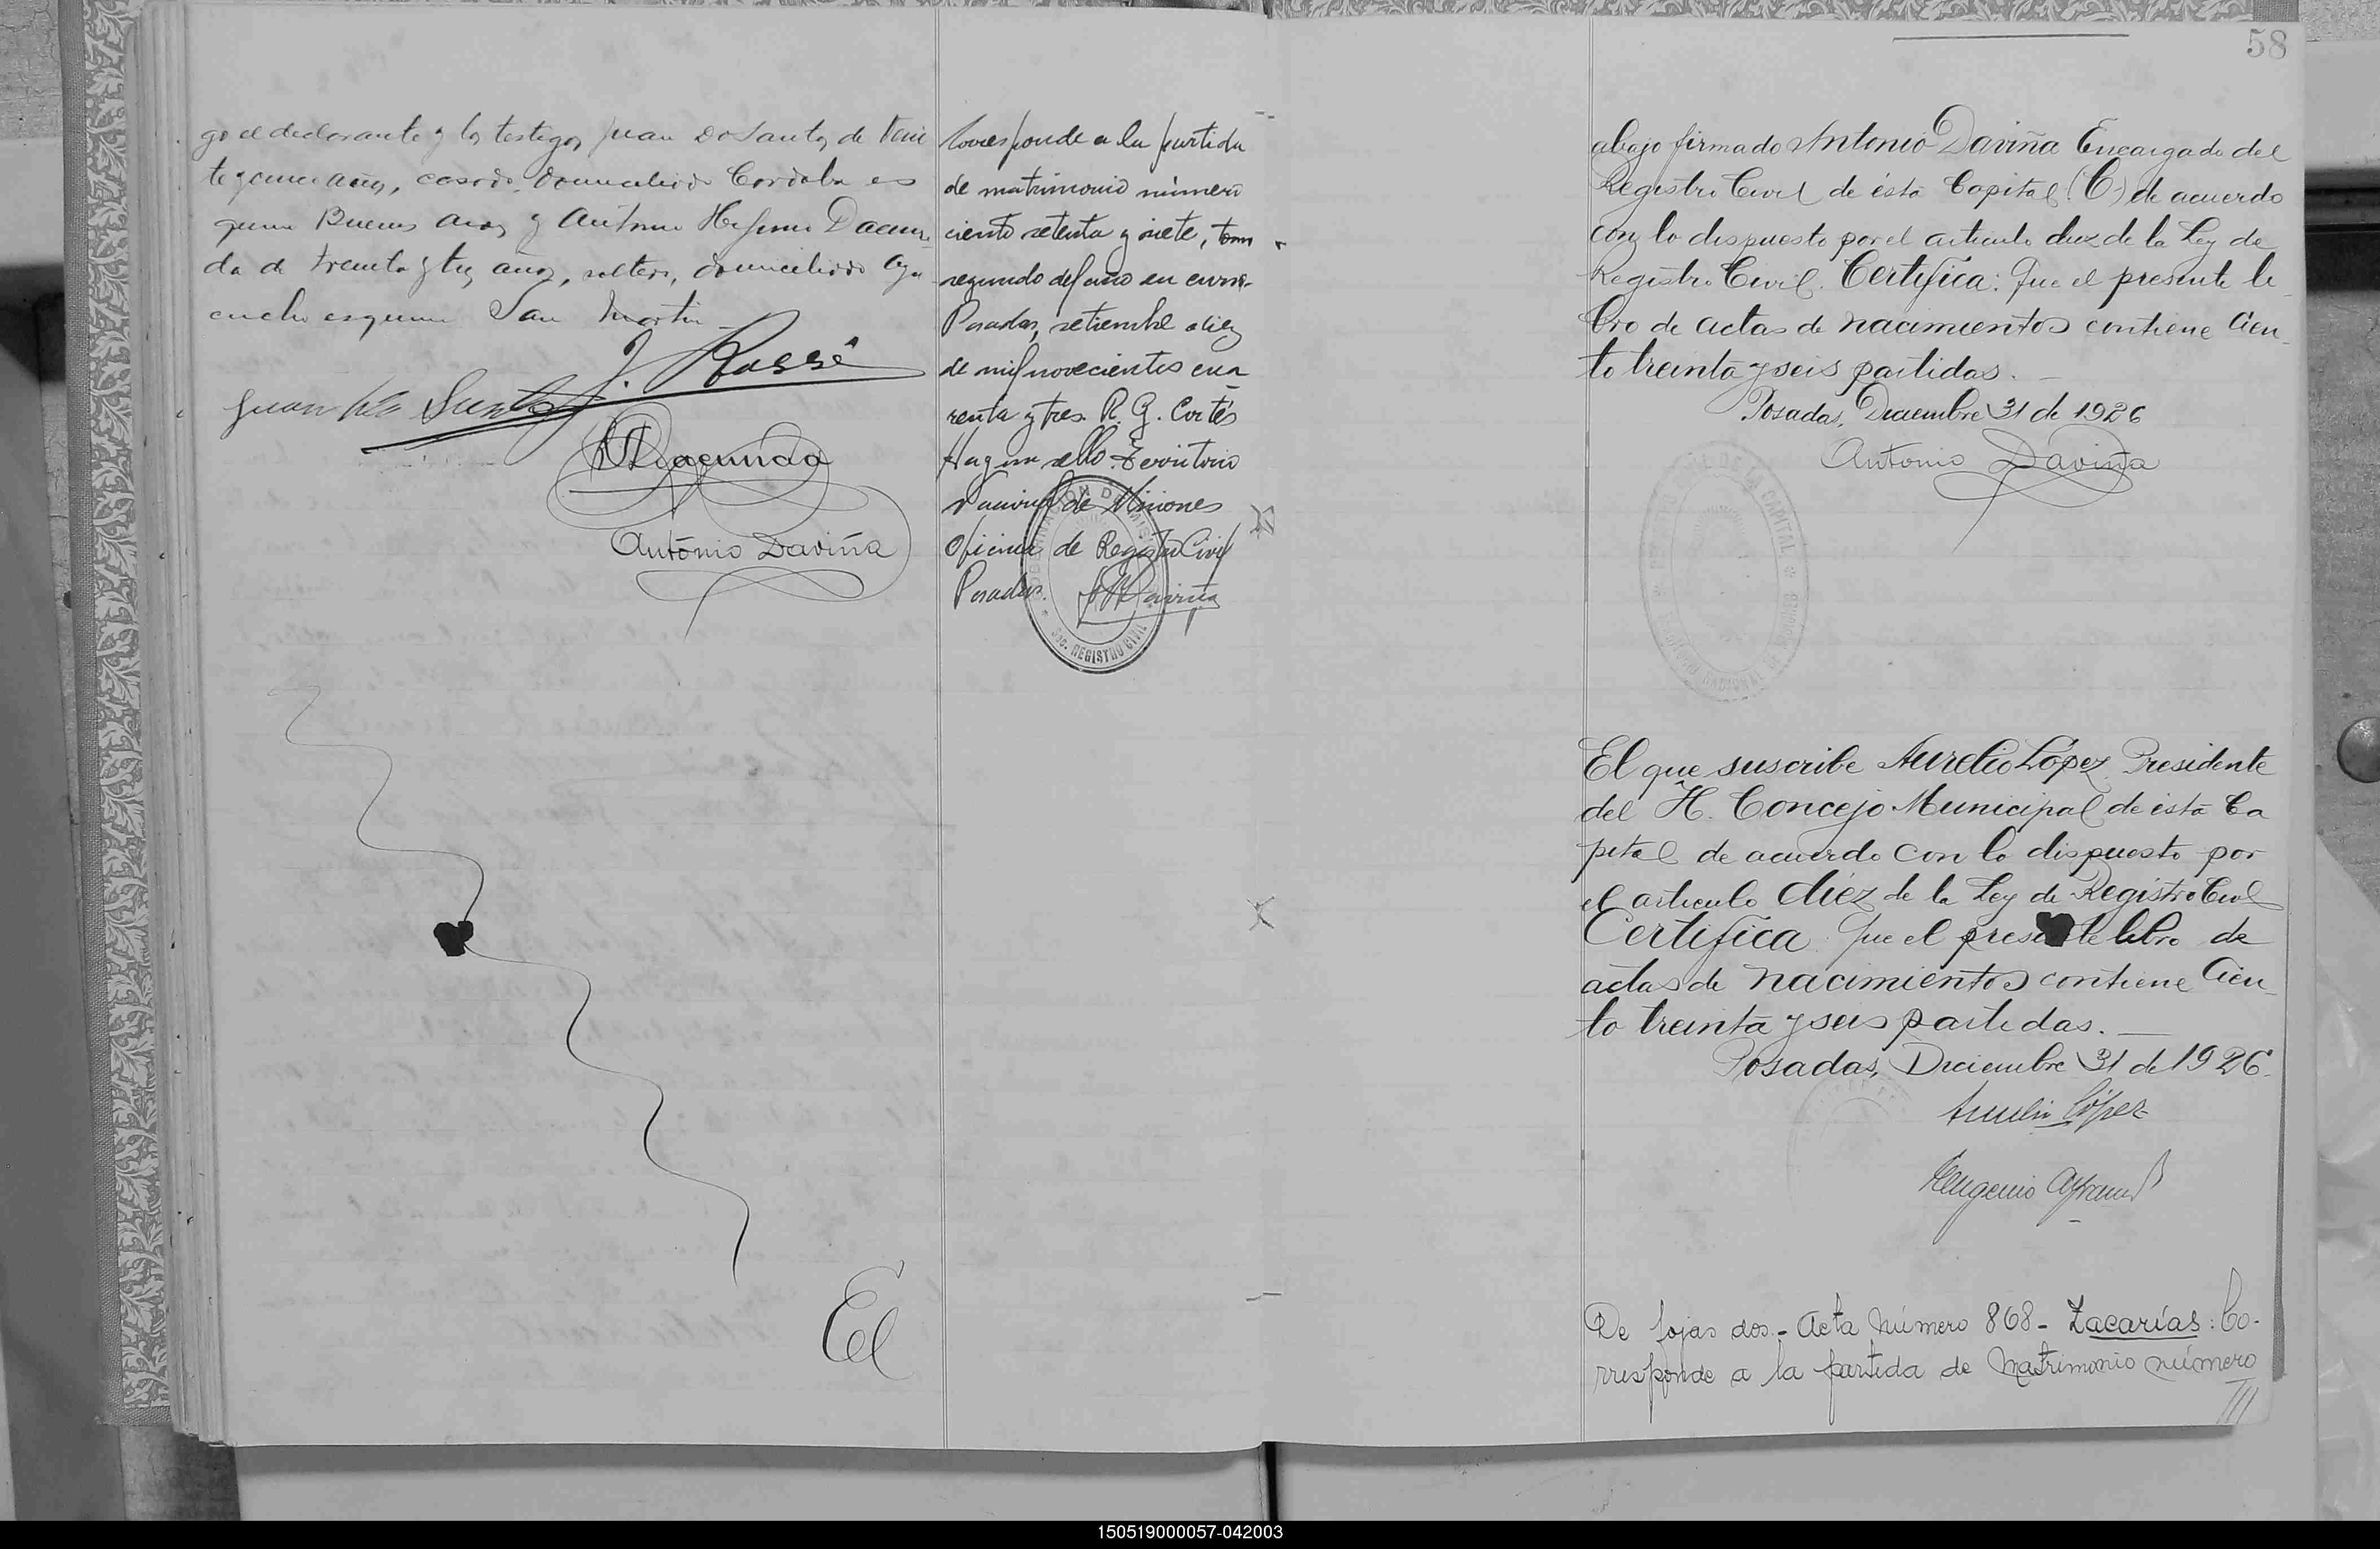 go el declarante y los testigos Juan Do Santos, de vein
te y cinco años, casado, domiciliado Cordoba es
quina Buenos Aires y Antonio Higinio Dacun
da de treinta y tres años, soltero, domiciliado Aya
cucho esquina San Martin
J. Rossé
Juan Do Santos
Dacunda
Antonio Daviña
El
Corresponde a la partida
de matrimonio número
ciento setenta y siete, tomo
segundo del año en curso.
Posadas, setiembre diez
de mil novecientos cua
renta y tres. R. G. Cortés
Hay un sello: Territorio
Nacional de Misiones
Oficina de Registro Civil
Posadas.
REGISTRO CIVIL
58
abajo firmado Antonio Daviña Encargado del
Registro Civil de ésta Capital (C) de acuerdo
con lo dispuesto por el articulo diez de la Ley de
Registro Civil. Certifica: Que el presente li
bro de actas de nacimientos contiene Cien
to treinta y seis partidas. —
Posadas, Diciembre 31 de 1926
Antonio Daviña
El que suscribe Aurelio López Presidente
del H. Concejo Municipal de ésta Ca
pital de acuerdo con lo dispuesto por
el articulo diéz de la Ley de Registro Civil
Certifica: Que el presente libro de
actas de nacimientos contiene Cien
to treinta y seis partidas. —
Posadas, Diciembre 31 de 1926.
Aurelio López
Eugenio
De fojas dos.- Acta Número 868 - Zacarías: Co-
rresponde a la partida de Matrimonio número
///
150519000057-042003